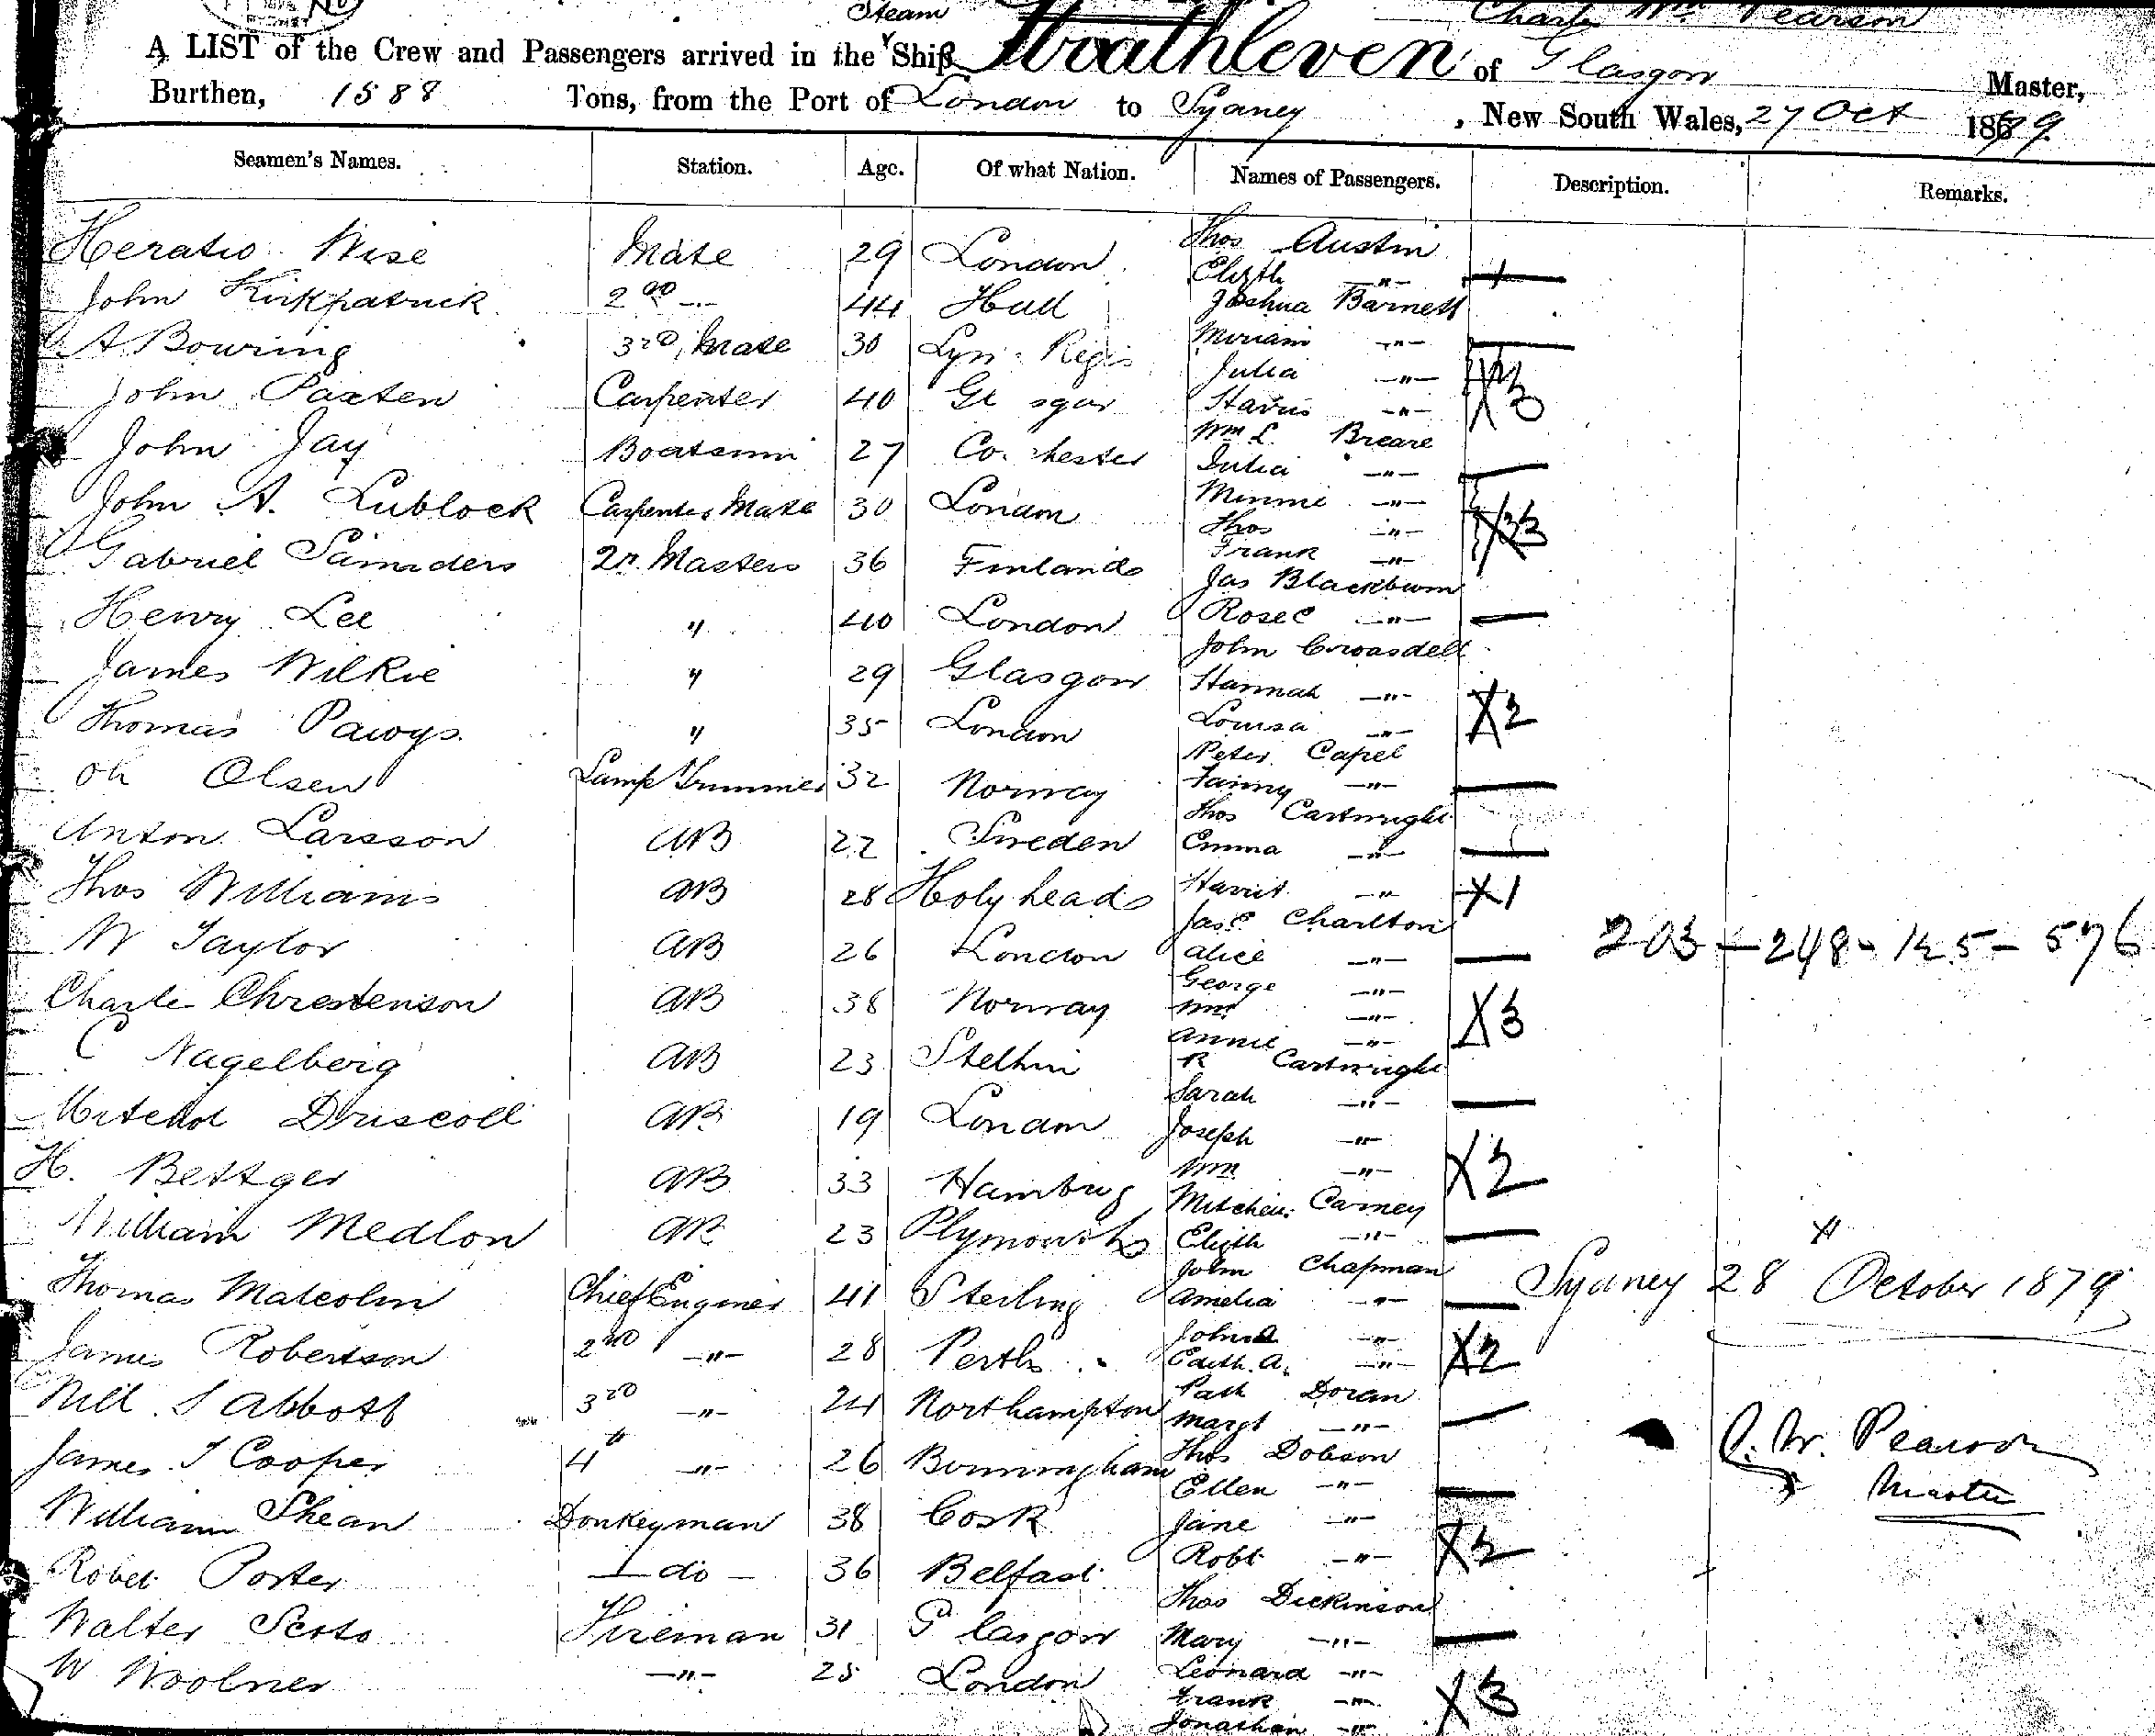 SYDNEY
Steam Charles Wm Pearson
A LIST of the Crew and Passengers arrived in the Ship Strathleven of Glasgow Master,
Burthen, 1588 Tons, from the Port of London to Sydney, New South Wales, 27 Oct 1879
Seamen's Names. Station. Age. Of what Nation. Names of Passengers. Description. Remarks.
Horatio Wise Mate 29 London Thos Austin
Elizth -"-
John Kirkpatrick 2nd -"- 44 Hull Joshua Barnett
A. Bowring 3rd Mate 30 Lyn Regis Miriam -"-
Julia -"- X3
John Paxten Carpenter 40 Gl sgow Harris -"-
Wm L. Breare
John Jay Boatswn 27 Co chester Julia -"-
Minnie -"-
John A. Lublock Carpenters Mate 30 London Thos -"- X3
Frank -"-
Gabriel 2r. Masters 36 Finland Jas Blackburn
Henry Lee " 40 London Rose E -"-
John Croasdell
James Wilkie " 29 Glasgow Hannah -"-
Louisa -"- X2
Thomas Powys " 35 London Peter Capel
Olsen Lamp Trimmer 32 Norway Fanny -"-
Thos Cartwright
Anton Larsson AB 22 Sweden Emma -"-
Thos Williams AB 28 Holyhead Harriet -"- X1
Jas E Charlton
W Taylor AB 26 London Alice -"- 203-248-125-576
George -"-
Charles Chrestenson AB 38 Norway Wm -"- X3
Annie -"-
C Nagelberg AB 23 Stettin R Cartwright
Sarah -"-
Driscoll AB 19 London Joseph -"-
Wm -"- X2
H. Bettger AB 33 Hamburg Carney
William Medlon AB 23 Plymouth Elizth -"-
John Chapman
Thomas Malcolm Chief Engineer 41 Sterling Amelia -"- Sydney 28 October 1879
John A -"-
James Robertson 2nd -"- 28 Perth Edith A. -"- X2
Patk Doran
Will S Abbott 3rd -"- 24 Northampton Margt -"-
Thos Dobson C. W. Pearson
James T Cooper 4th -"- 26 Birmingham Ellen -"- Master
William Shean Donkeyman 38 Cork Jane -"-
Robt -"- X2
Robert Porter -do- 36 Belfast Thos Dickinson
Walter Scott Fireman 31 Glasgow Mary -"-
W Woolner -"- 25 London Leonard -"-
Frank -"- X3
Jonathan -"-